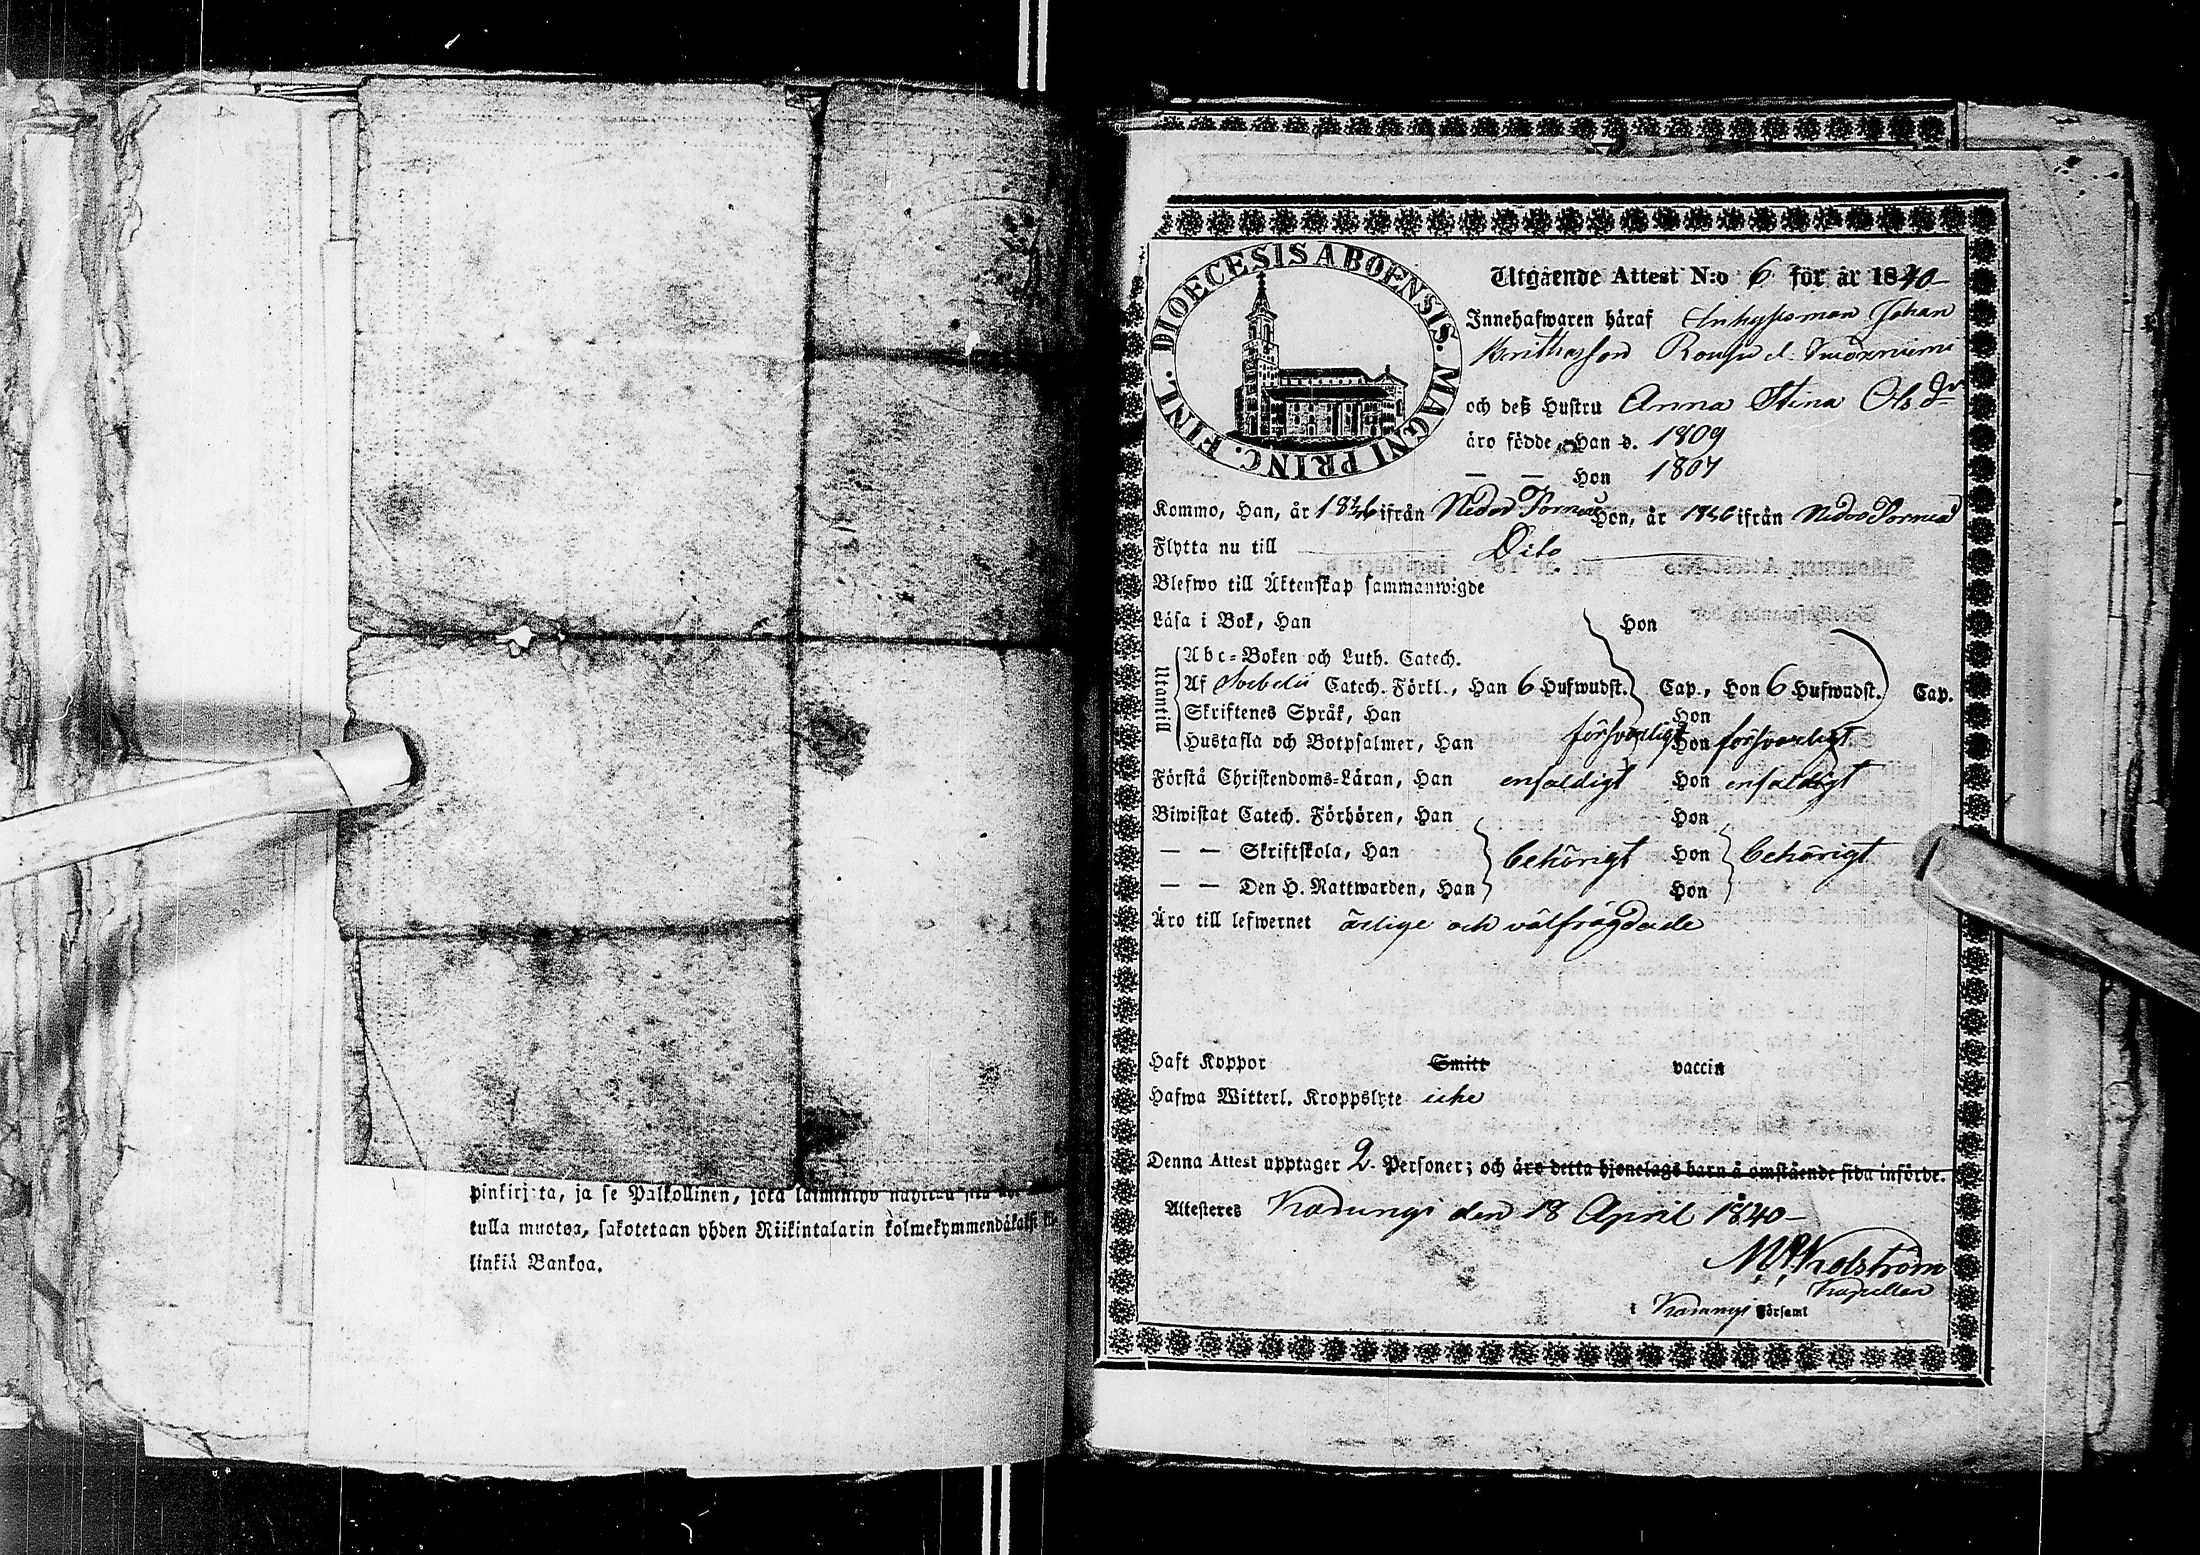 pinkirjota, ja se Palkollinen, joka
tulla muotoa, sakotetaan yhden Riikintalarin kolmekymmendäkaksi
linkiä Bankoa.
DIOECESIS ABOENSIS. MAGNI PRINC. FINL.
Utgående Attest N:o 6 för år 1840
Innehafwaren häraf Inhysesman Johan
och deß Hustru Anna Stina Olsdr
äro födde, Han d. 1809
— — Hon 1807
Kommo, Han, år 1836 ifrån Neder Torneå Hon, år 1836 ifrån Neder Torneå
Flytta nu till Dito
Blefwo till Äktenskap sammanwigde
Läsa i Bok, Han Hon
Utantill
Abc-Boken och Luth. Catech.
Af Svebelii Catech. Förkl., Han 6 Hufwudst. Cap., Hon 6 Hufwudst. Cap.
Skriftenes Språk, Han Hon
Hustafla och Botpsalmer, Han försvarligt Hon försvarligt
Förstå Christendoms-Läran, Han enfaldigt Hon enfaldigt
Biwistat Catech. Förhören, Han Hon
— — Skriftskola, Han behörigt Hon behörigt
— — Den H. Nattwarden, Han Hon
Äro till lefwernet ärlige och välfrägdade
Haft Koppor Smitt vaccin
Hafwa Witterl. Kroppslyte icke
Denna Attest upptager 2 Personer; och äro detta hjonelags barn å omstående sida införde.
Attesteras Karungi den 18 April 1840
Kapellan
i Karungi Församl